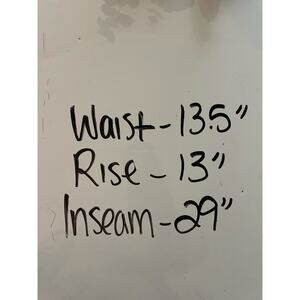 Waist - 13.5"
Rise - 13"
Inseam - 29"